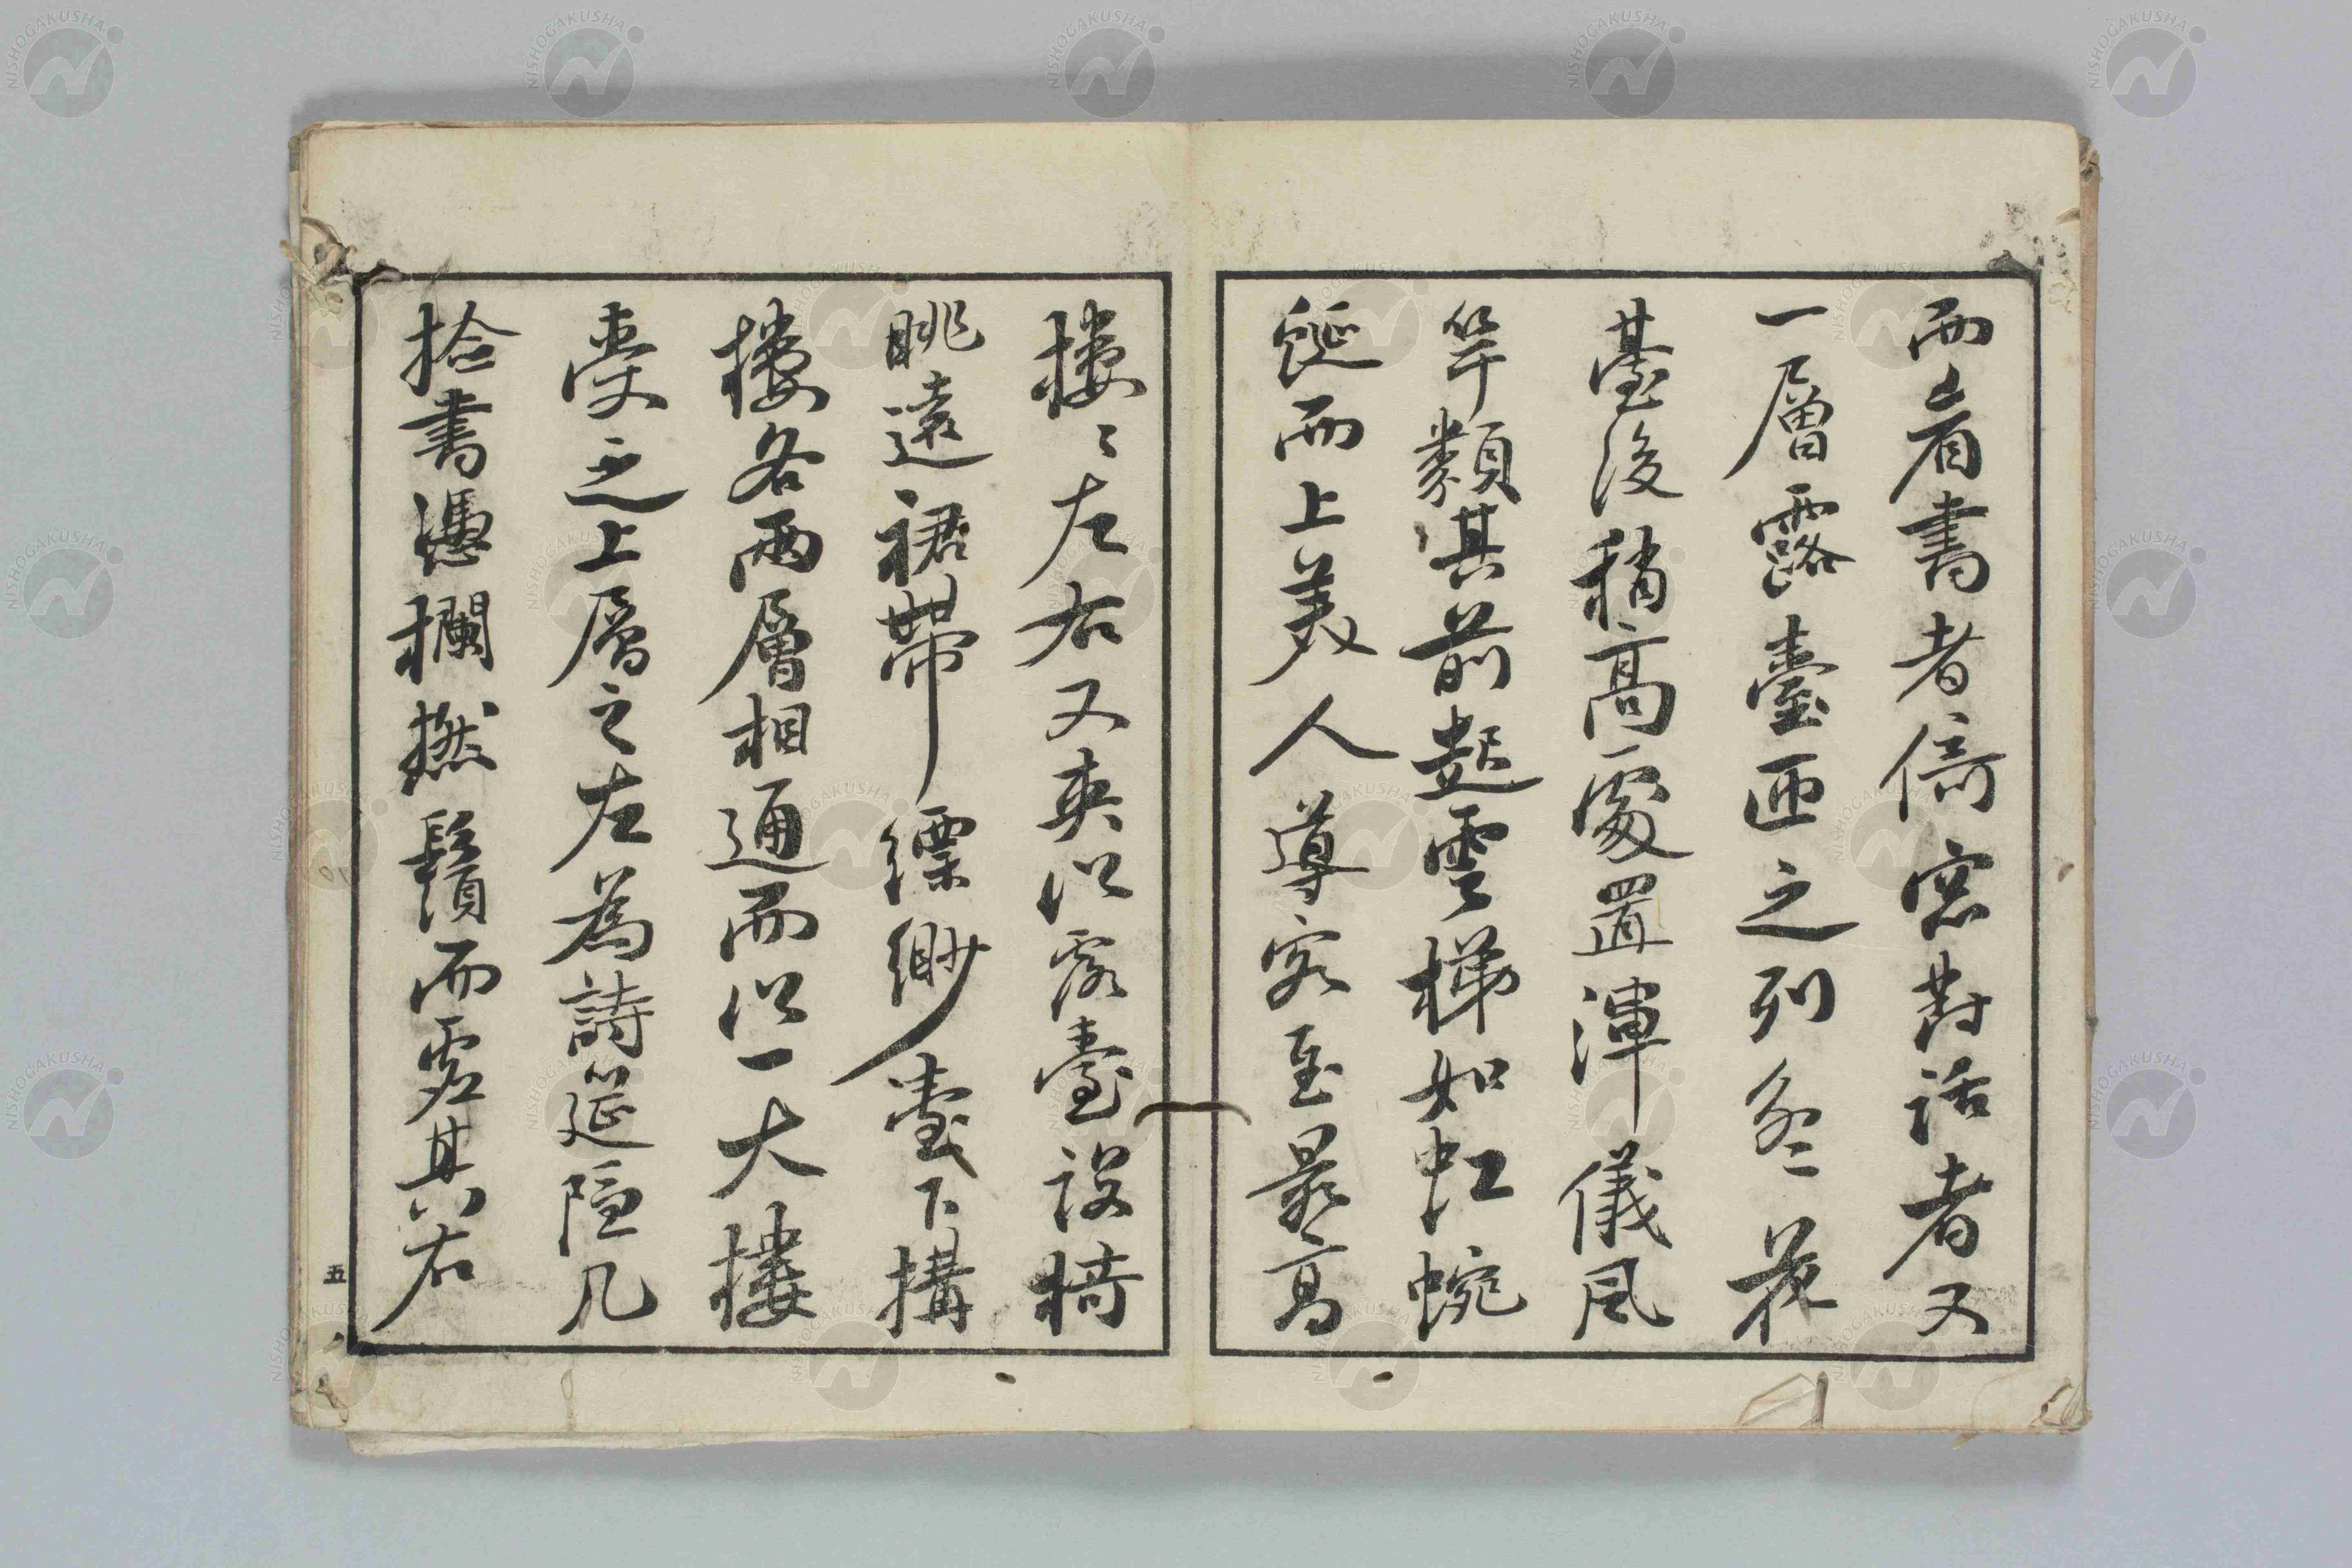 而看書者倚窓對話者又
一層露臺匝之列盆花
臺後稍高處置渾儀風
竿類其前起雲梯如虹蜿
蜒而上美人導客至最高
樓〻左右又夾以露臺設椅
眺遠裙帶縹緲臺下構
樓各兩層相通而以一大樓
之上層之左為詩筵隱几
拾書憑欄撚鬚而處其右
五
NISHOGAKUSHA